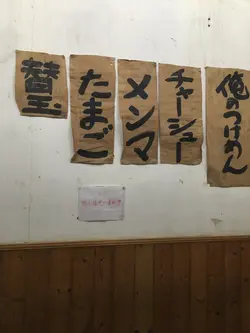 俺のつけめん
チャーシュー
メンマ
たまご
替玉